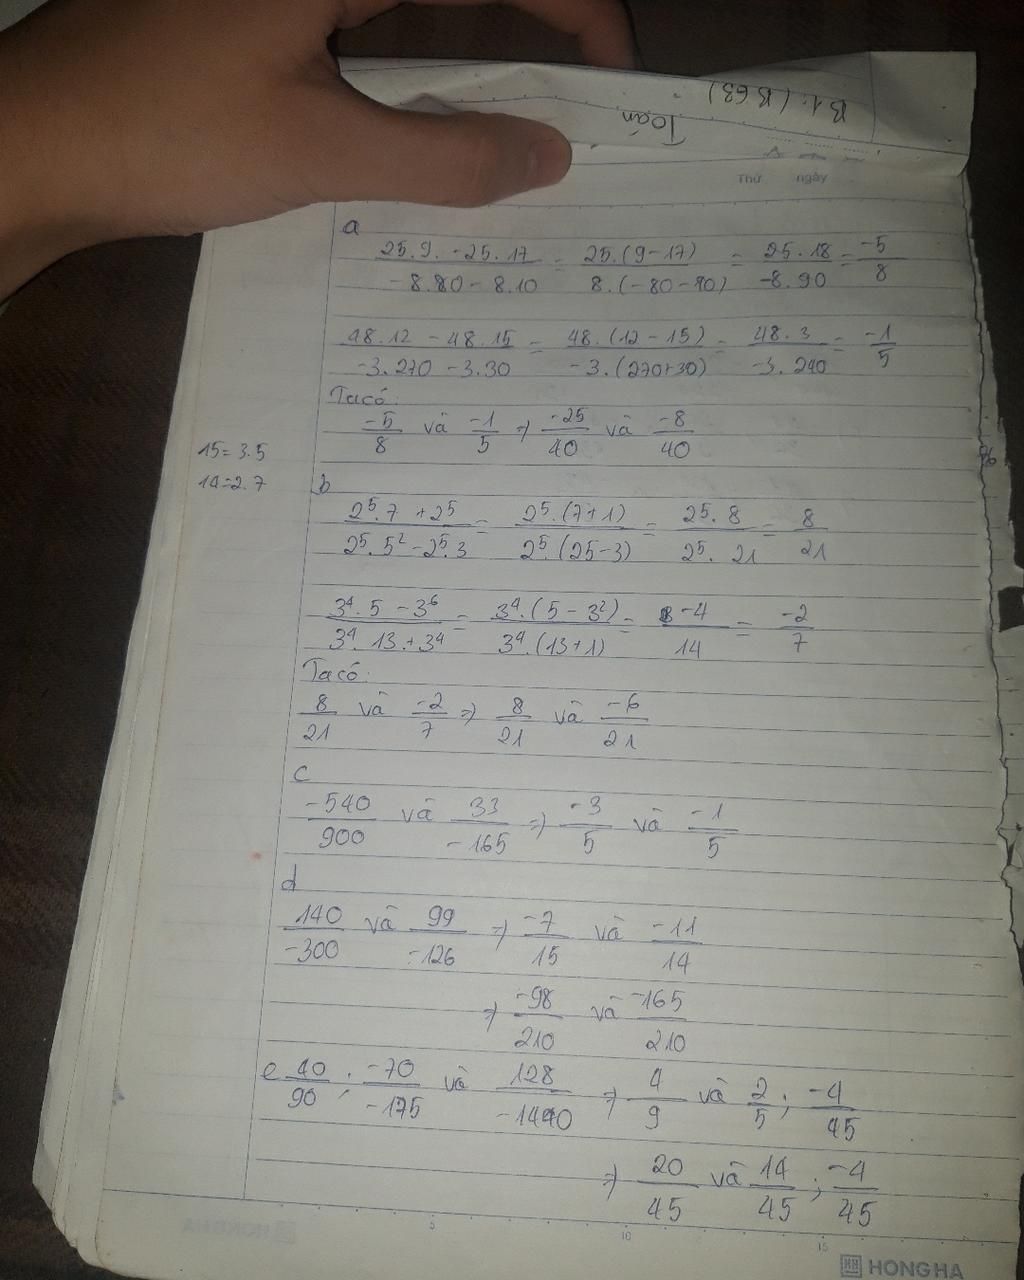 Toán
B1: (B 63)
Thứ ngày
a
25.9. - 25.17 / -8.80 - 8.10 = 25.(9-17) / 8.(-80-90) = 25.18 / -8.90 = -5/8
48.12 - 48.15 / -3.270 - 3.30 = 48.(12-15) / -3.(270+30) = 48.3 / -3.240 = -1/5
Ta có:
-5/8 và -1/5 => -25/40 và -8/40
15=3.5
14=2.7
b
2⁵.7 + 2⁵ / 2⁵.5² - 2⁵.3 = 2⁵.(7+1) / 2⁵.(25-3) = 2⁵.8 / 2⁵.21 = 8/21
3⁴.5 - 3⁶ / 3⁴.13 + 3⁴ = 3⁴.(5-3²) / 3⁴.(13+1) = -4/14 = -2/7
Ta có:
8/21 và -2/7 => 8/21 và -6/21
c
-540/900 và 33/-165 => -3/5 và -1/5
d
140/-300 và 99/-126 => -7/15 và -11/14
=> -98/210 và -165/210
e 40/90 ; -70/-175 và 128/-1440 => 4/9 và 2/5 ; -4/45
=> 20/45 và 14/45 ; -4/45
5 10 15
HONG HA